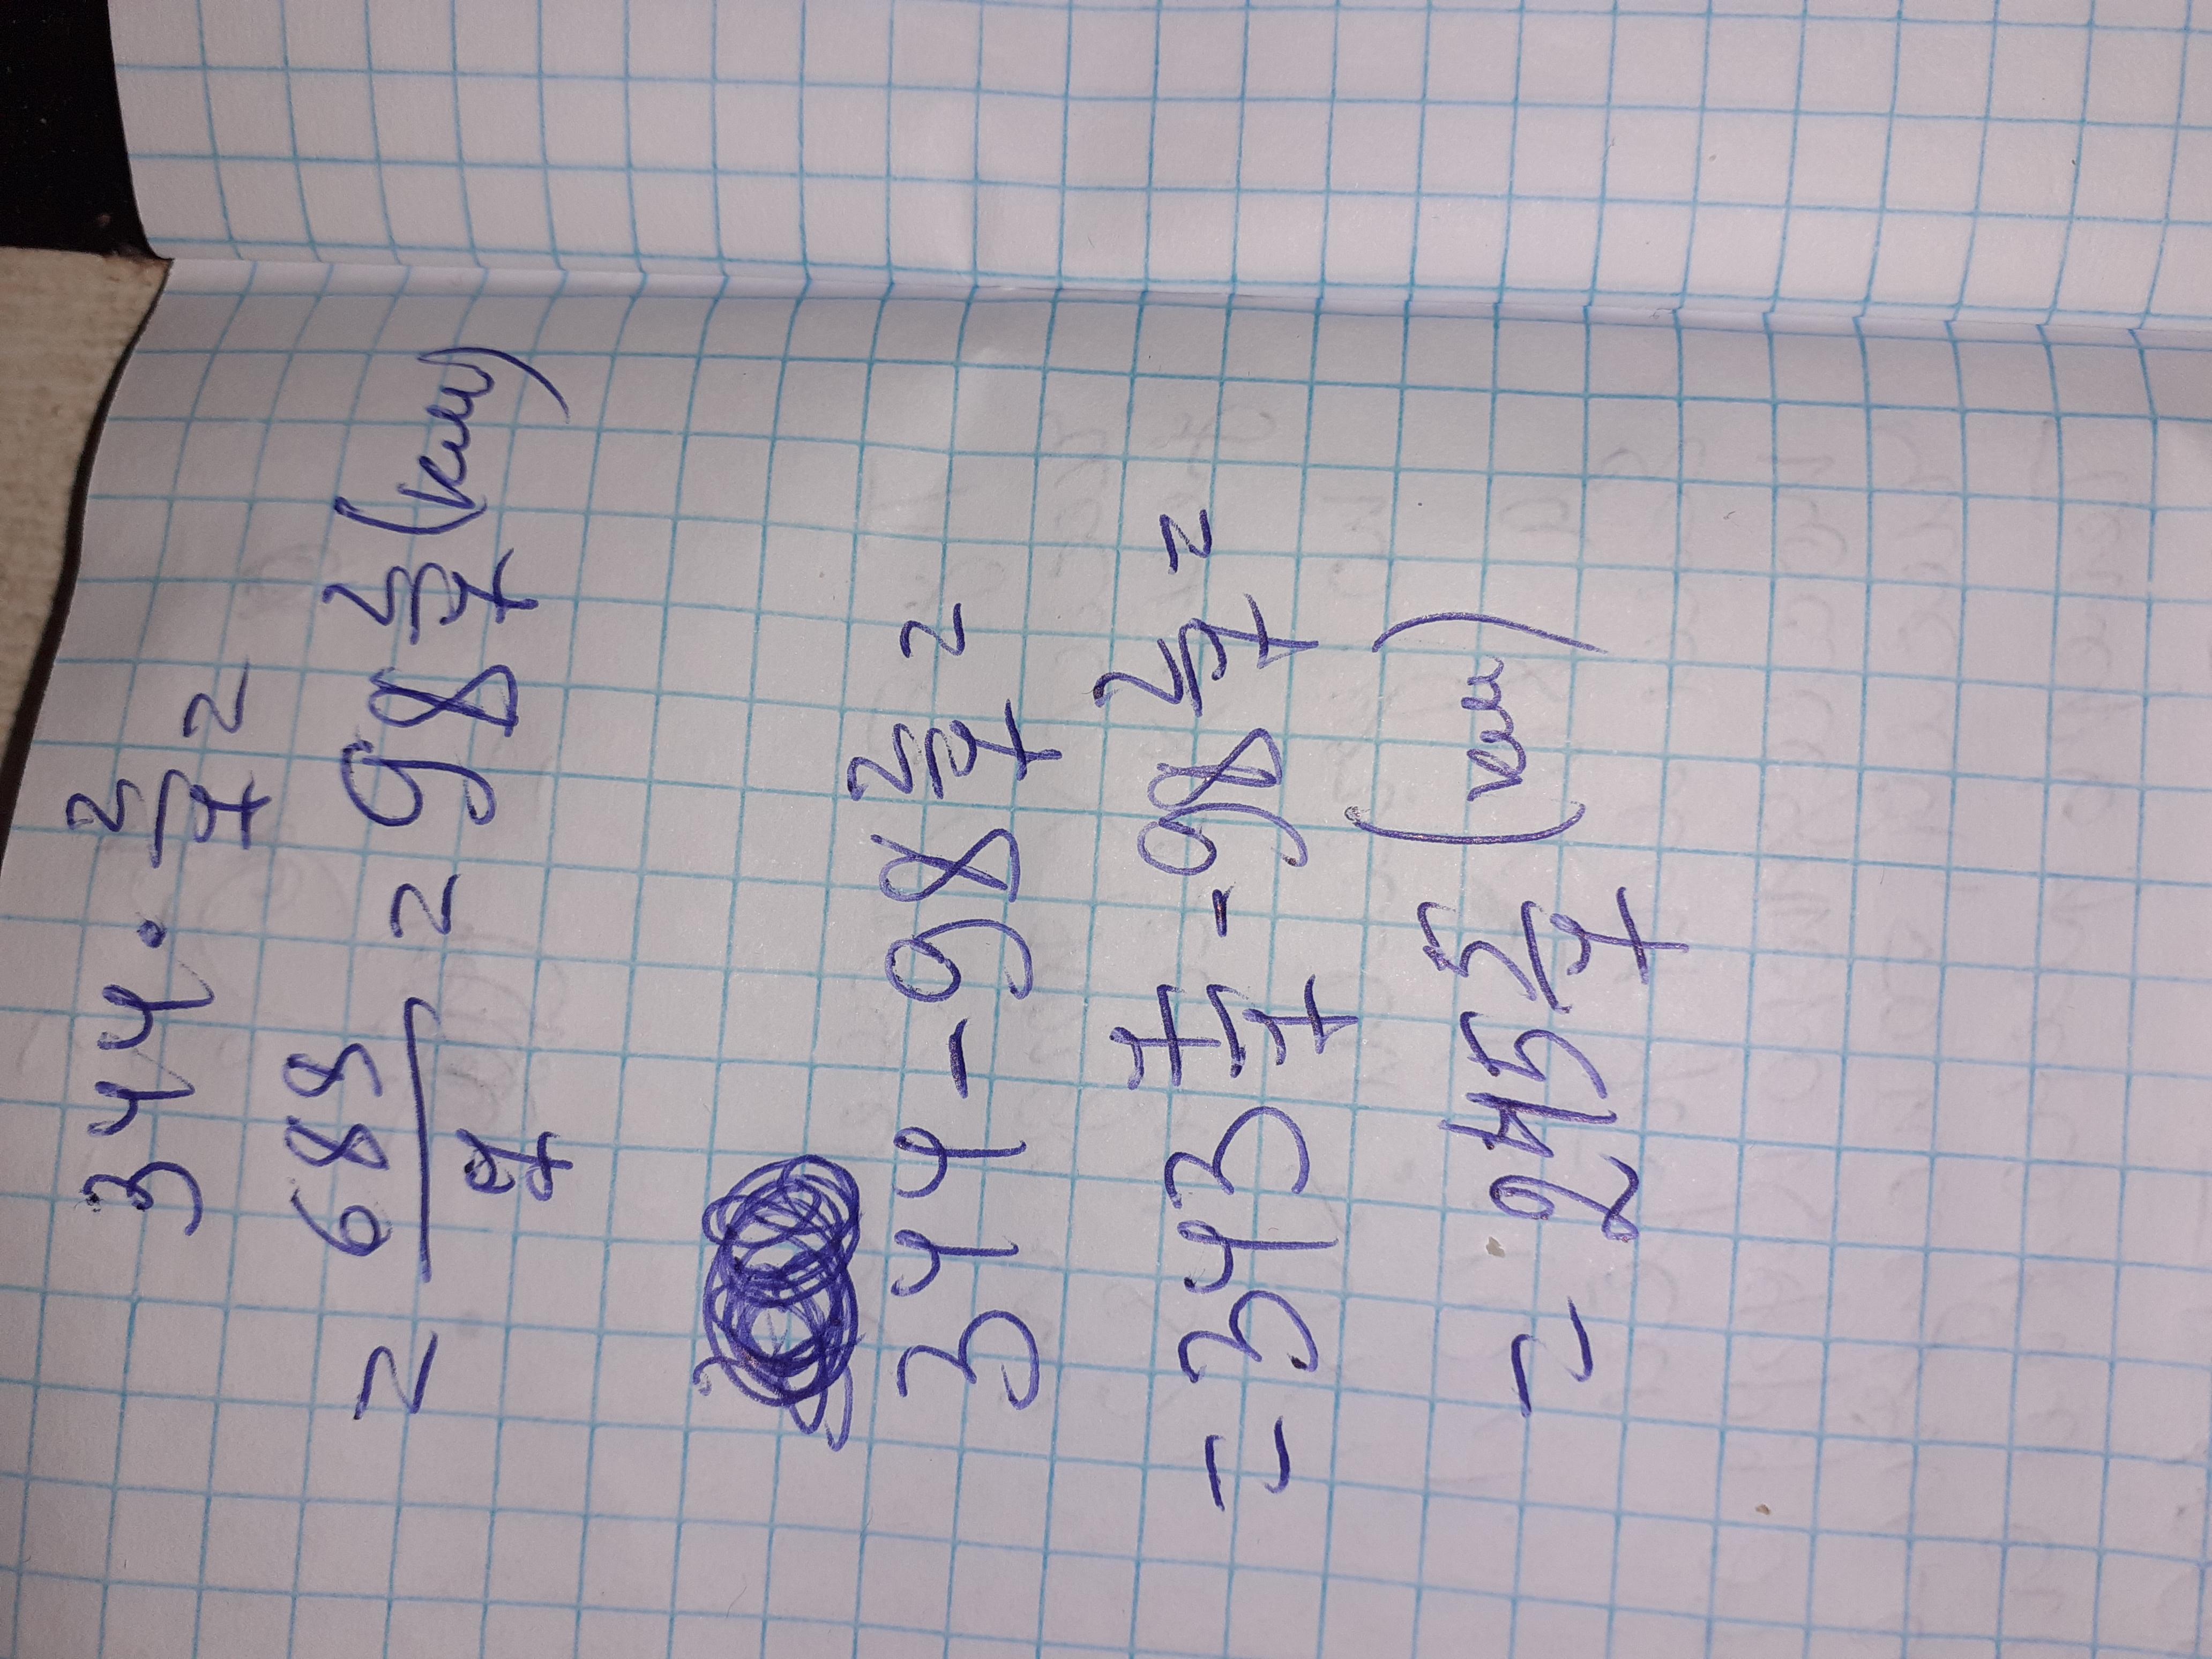 344 · 2/7 =
= 688/7 = 98 2/7 (км)
344 - 98 2/7 =
= 343 7/7 - 98 2/7 =
= 245 5/7 (км)